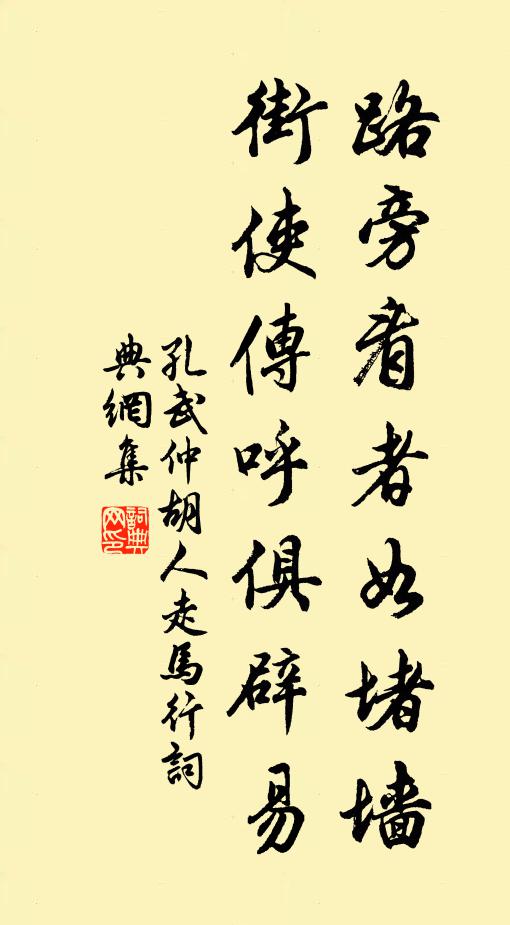 路旁看者如堵墙
街使傳呼俱辟易
孔武仲胡人走馬行詞
典網集
詞典网印